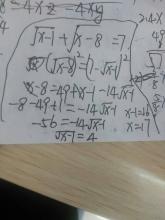 = 4xz = 4xy
√x-1 + √x-8 = 7
(√x-8)² = (7-√x-1)²
x-8 = 49+x-1-14√x-1
-8-49+1 = -14√x-1
-56 = -14√x-1
√x-1 = 4
x-1=16
x=17